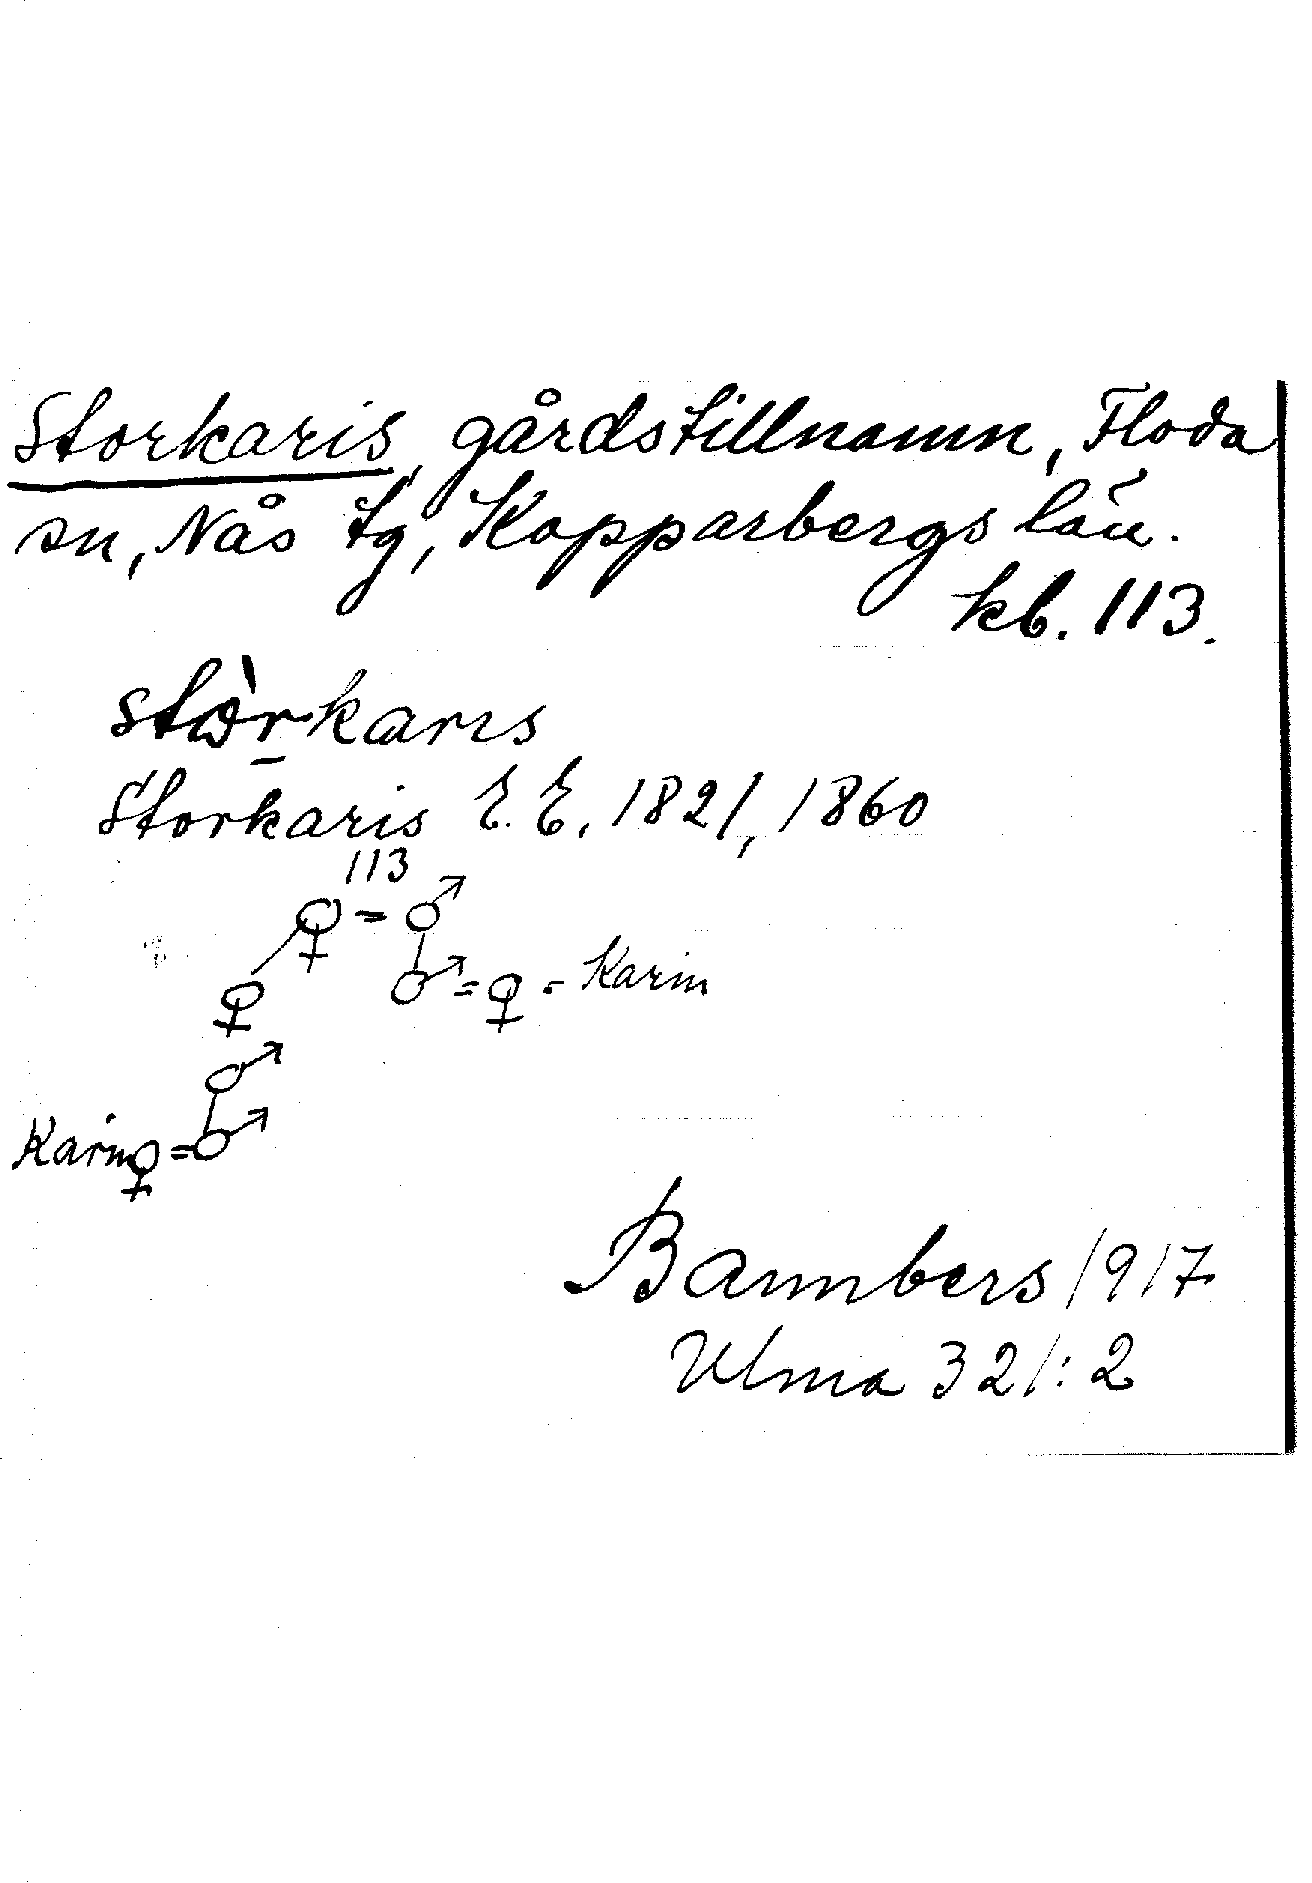 Storkaris, gårdstillnamn, Floda
sn, Nås tg, Kopparbergs län.
kb. 113.
Storkaris E.E. 1821, 1860
113
♀ = ♂
♀ ♂ = ♀ = Karin
♂
Karin ♀ = ♂
Bannbers 1917
Ulma 321:2